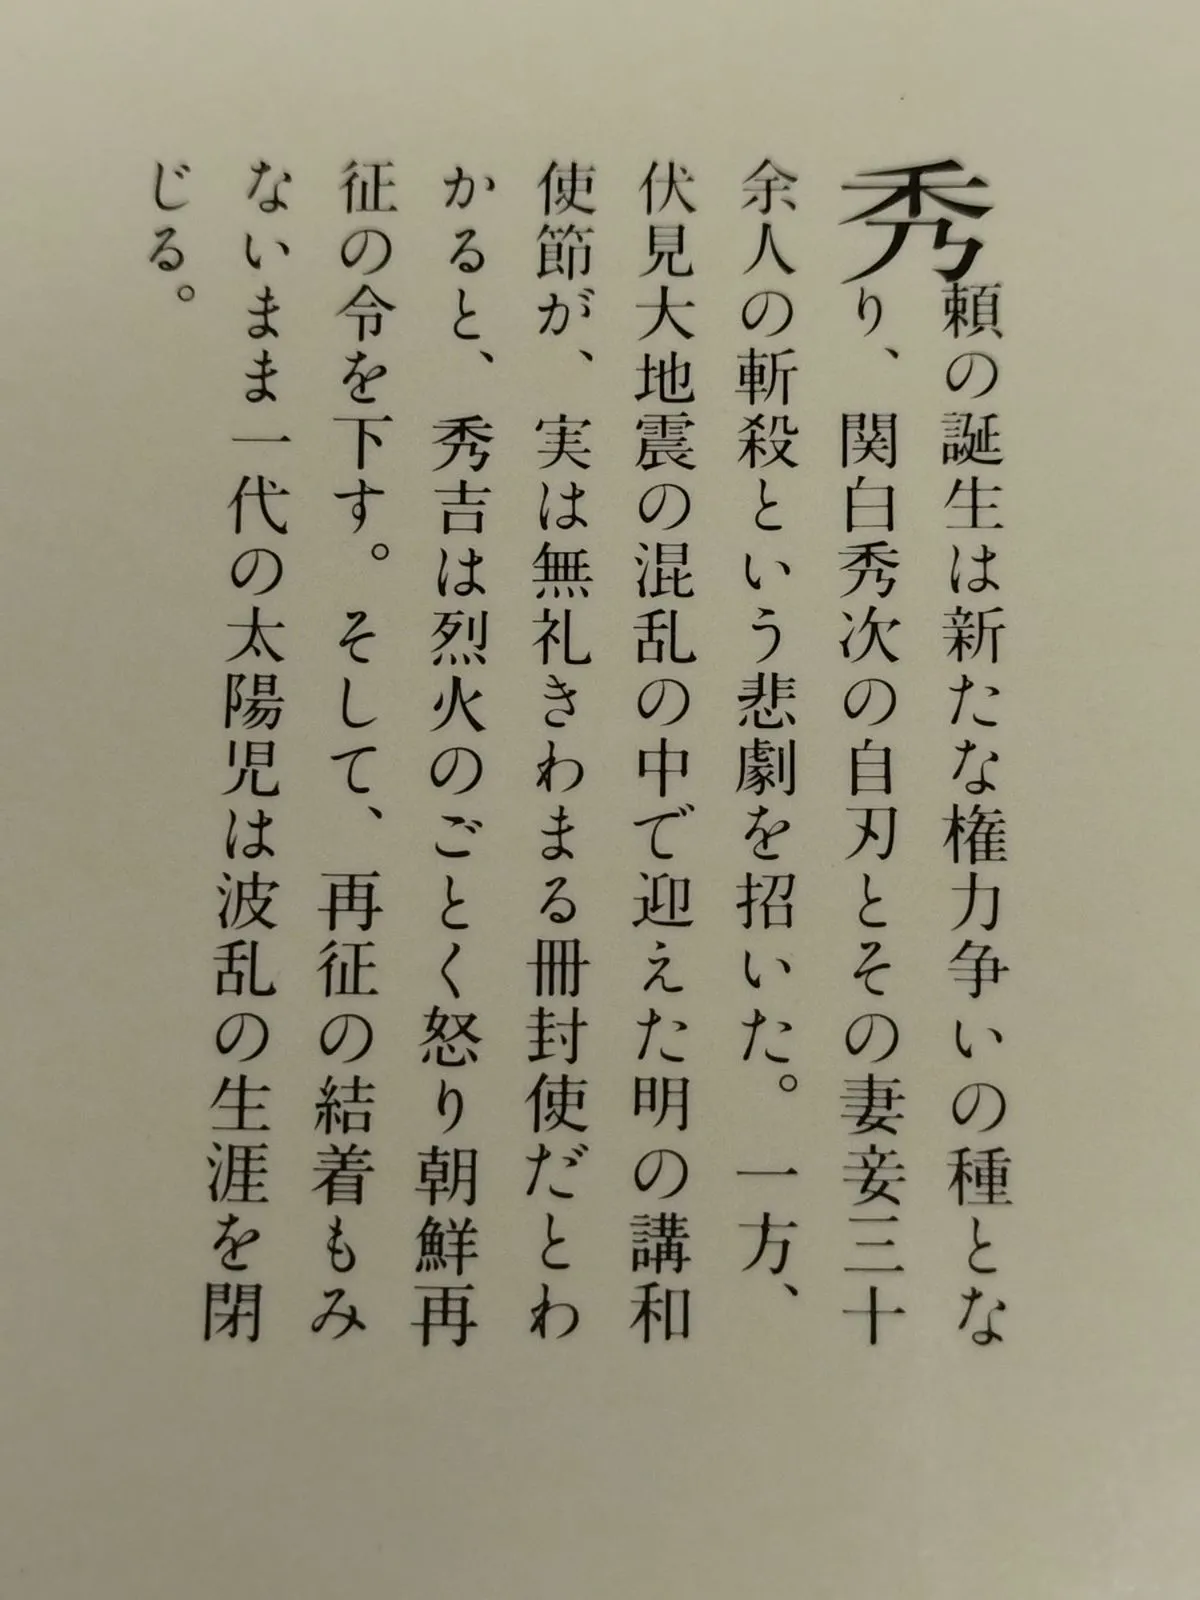 秀頼の誕生は新たな権力争いの種とな
り、関白秀次の自刃とその妻妾三十
余人の斬殺という悲劇を招いた。一方、
伏見大地震の混乱の中で迎えた明の講和
使節が、実は無礼きわまる冊封使だとわ
かると、秀吉は烈火のごとく怒り朝鮮再
征の令を下す。そして、再征の結着もみ
ないまま一代の太陽児は波乱の生涯を閉
じる。